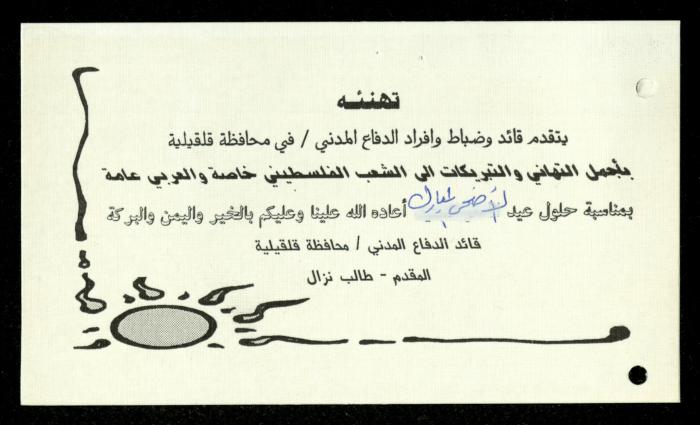 تهنئه
يتقدم قائد وضباط وافراد الدفاع المدني / في محافظة قلقيلية
بأجمل التهاني والتبريكات الى الشعب الفلسطيني خاصة والعربي عامة
بمناسبة حلول عيد الأضحى المبارك أعاده الله علينا وعليكم بالخير واليمن والبركة
قائد الدفاع المدني / محافظة قلقيلية
المقدم - طالب نزال